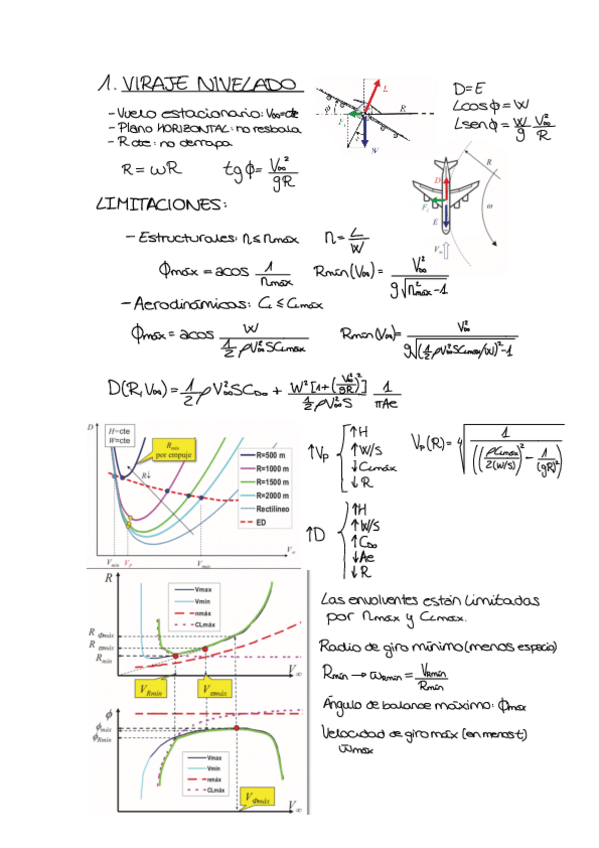 1. VIRAJE NIVELADO
- Vuelo estacionario: V∞=cte
- Plano HORIZONTAL: no resbala
- R cte: no derrapa
R = ωR   tgϕ = V∞²/gR
L
ϕ
R
F
W
D=E
Lcosϕ = W
Lsenϕ = W/g V∞²/R
R
D
F
E
ω
V∞
LIMITACIONES:
- Estructurales: n≤nmáx   n = L/W
ϕmáx = acos 1/nmáx   Rmín(V∞) = V∞²/(g√(n²máx-1))
- Aerodinámicas: CL ≤ CLmáx
ϕmáx = acos W/(1/2 ρV∞²SCLmáx)   Rmín(V∞) = V∞²/(g√((1/2 ρV∞²SCLmáx/W)²-1))
D(R,V∞) = 1/2 ρV∞²SCD0 + W²[1+(V∞²/gR)²]/(1/2 ρV∞²S) 1/πAe
D
H=cte
W=cte
Rmin
por empuje
R↓
R=500 m
R=1000 m
R=1500 m
R=2000 m
Rectilíneo
ED
V∞
Vmin VP Vmax
↑VP
↑H
↑W/S
↓CLmáx
↓R
VP(R) = ⁴√(1/((ρCLmáx/2(W/S))² - 1/(gR)²))
↑D
↑H
↑W/S
↑CD0
↓Ae
↓R
R
Vmax
Vmin
nmáx
CLmáx
R ϕmáx
R ϖmáx
Rmin
V∞
VRmin
Vϖmáx
ϕ
ϕmáx
ϕRmin
Vmax
Vmin
nmáx
CLmáx
Vϕmáx
V∞
Las envolventes están limitadas
por nmáx y CLmáx.
Radio de giro mínimo (menos espacio)
Rmín → ϖRmín = VRmín/Rmín
Ángulo de balance máximo: ϕmax
Velocidad de giro máx (en menos t)
ϖmax